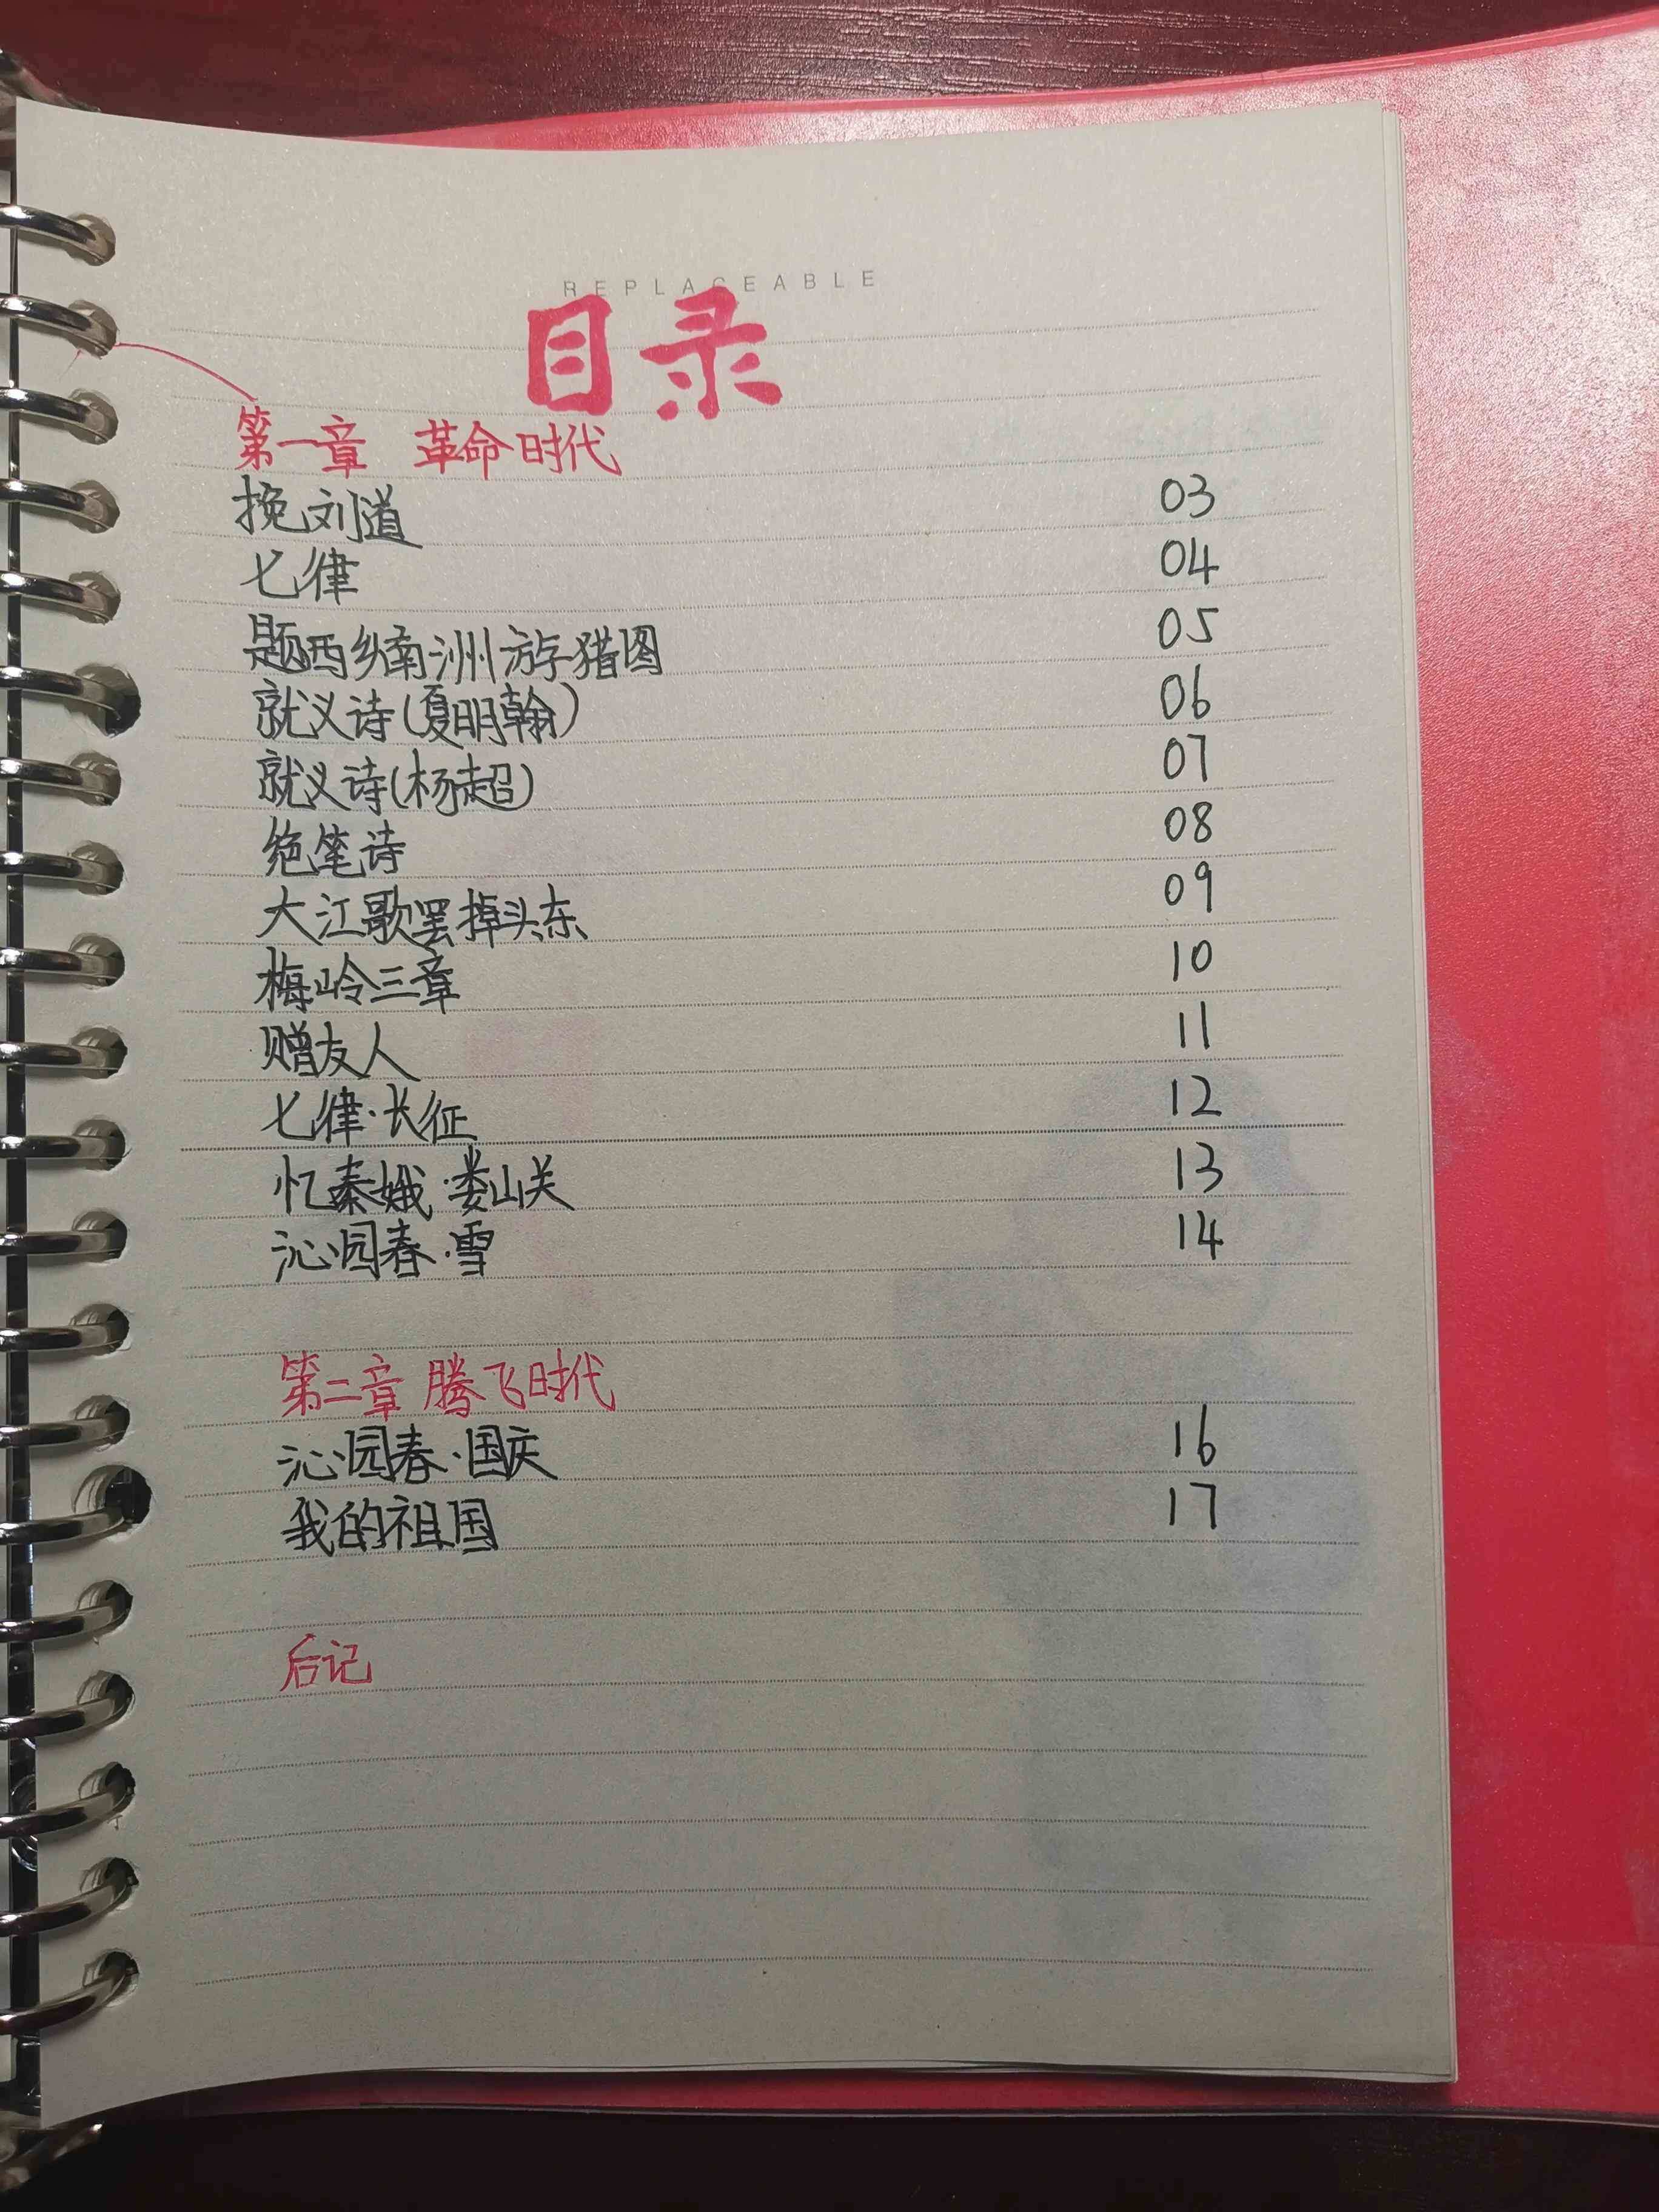 REPLACEABLE
目录
第一章 革命时代
挽刘道 03
七律 04
题西乡南洲游猎图 05
就义诗(夏明翰) 06
就义诗(杨超) 07
绝笔诗 08
大江歌罢掉头东 09
梅岭三章 10
赠友人 11
七律·长征 12
忆秦娥·娄山关 13
沁园春·雪 14
第二章 腾飞时代
沁园春·国庆 16
我的祖国 17
后记